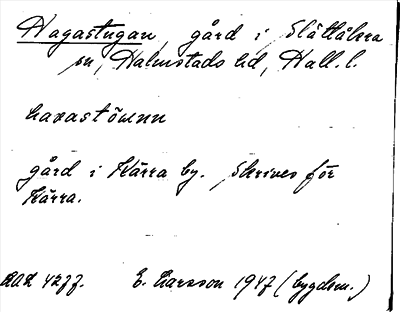 Hagastugan, gård i Slättåkra
sn, Halmstads hd, Hall. l.
havastömnn
gård i Kärra by. Skrives för
Kärra.
E. Larsson 1947 (bygdem.)